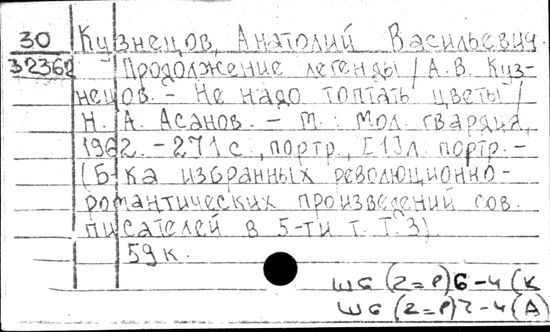 30 Кузнецов, Анатолий Васильевич.
32362 Продолжение легенды / А.В. Куз-
нецов. – Не надо топтать цветы /
Н. А. Асанов. – М. : Мол. гвардия,
1962. – 271 с., портр., [1] л. портр. –
(Б-ка избранных революционно-
романтических произведений сов.
писателей в 5-ти т. Т. 3)
59 к.
Ш6 (2=Р) 6-4 (К
Ш6 (2=Р) 7-4 (А)